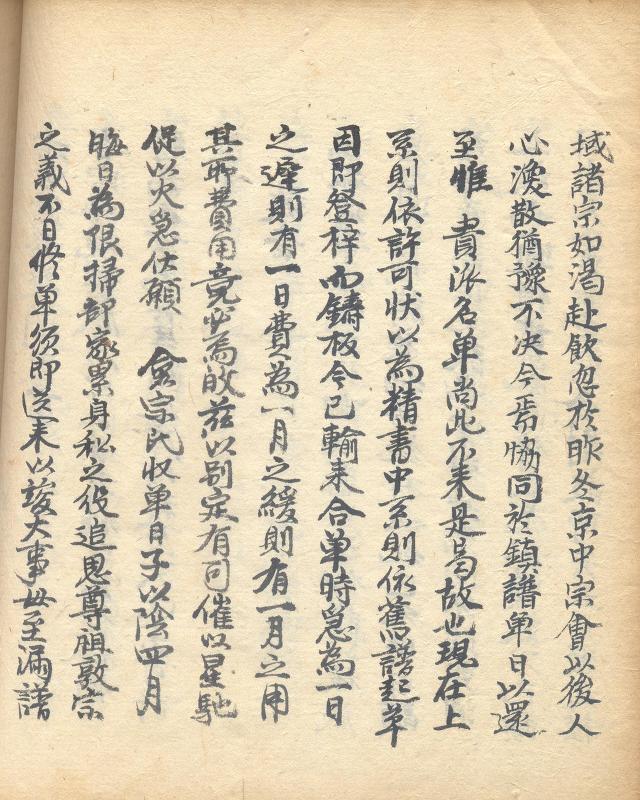 域諸宗如渴赴飮忽於昨冬京中宗會以後人
心渙散猶豫不决今焉恊同於鎮譜单日以還
至惟 貴派名单尚此不来是曷故也現在上
系則依許可状以為精書中系則依舊譜起草
因即登梓而鑄板今已輸来合单時急為一日
之遲則有一日費為一月之緩則有一月之用
其所費用竟必為敗玆以别定有司催以星馳
促以火急伏願 僉宗氏收单日子以陰四月
晦日為限掃却家累身私之役追思尊祖敦宗
之義不日修单須即送来以竣大事毋至漏譜